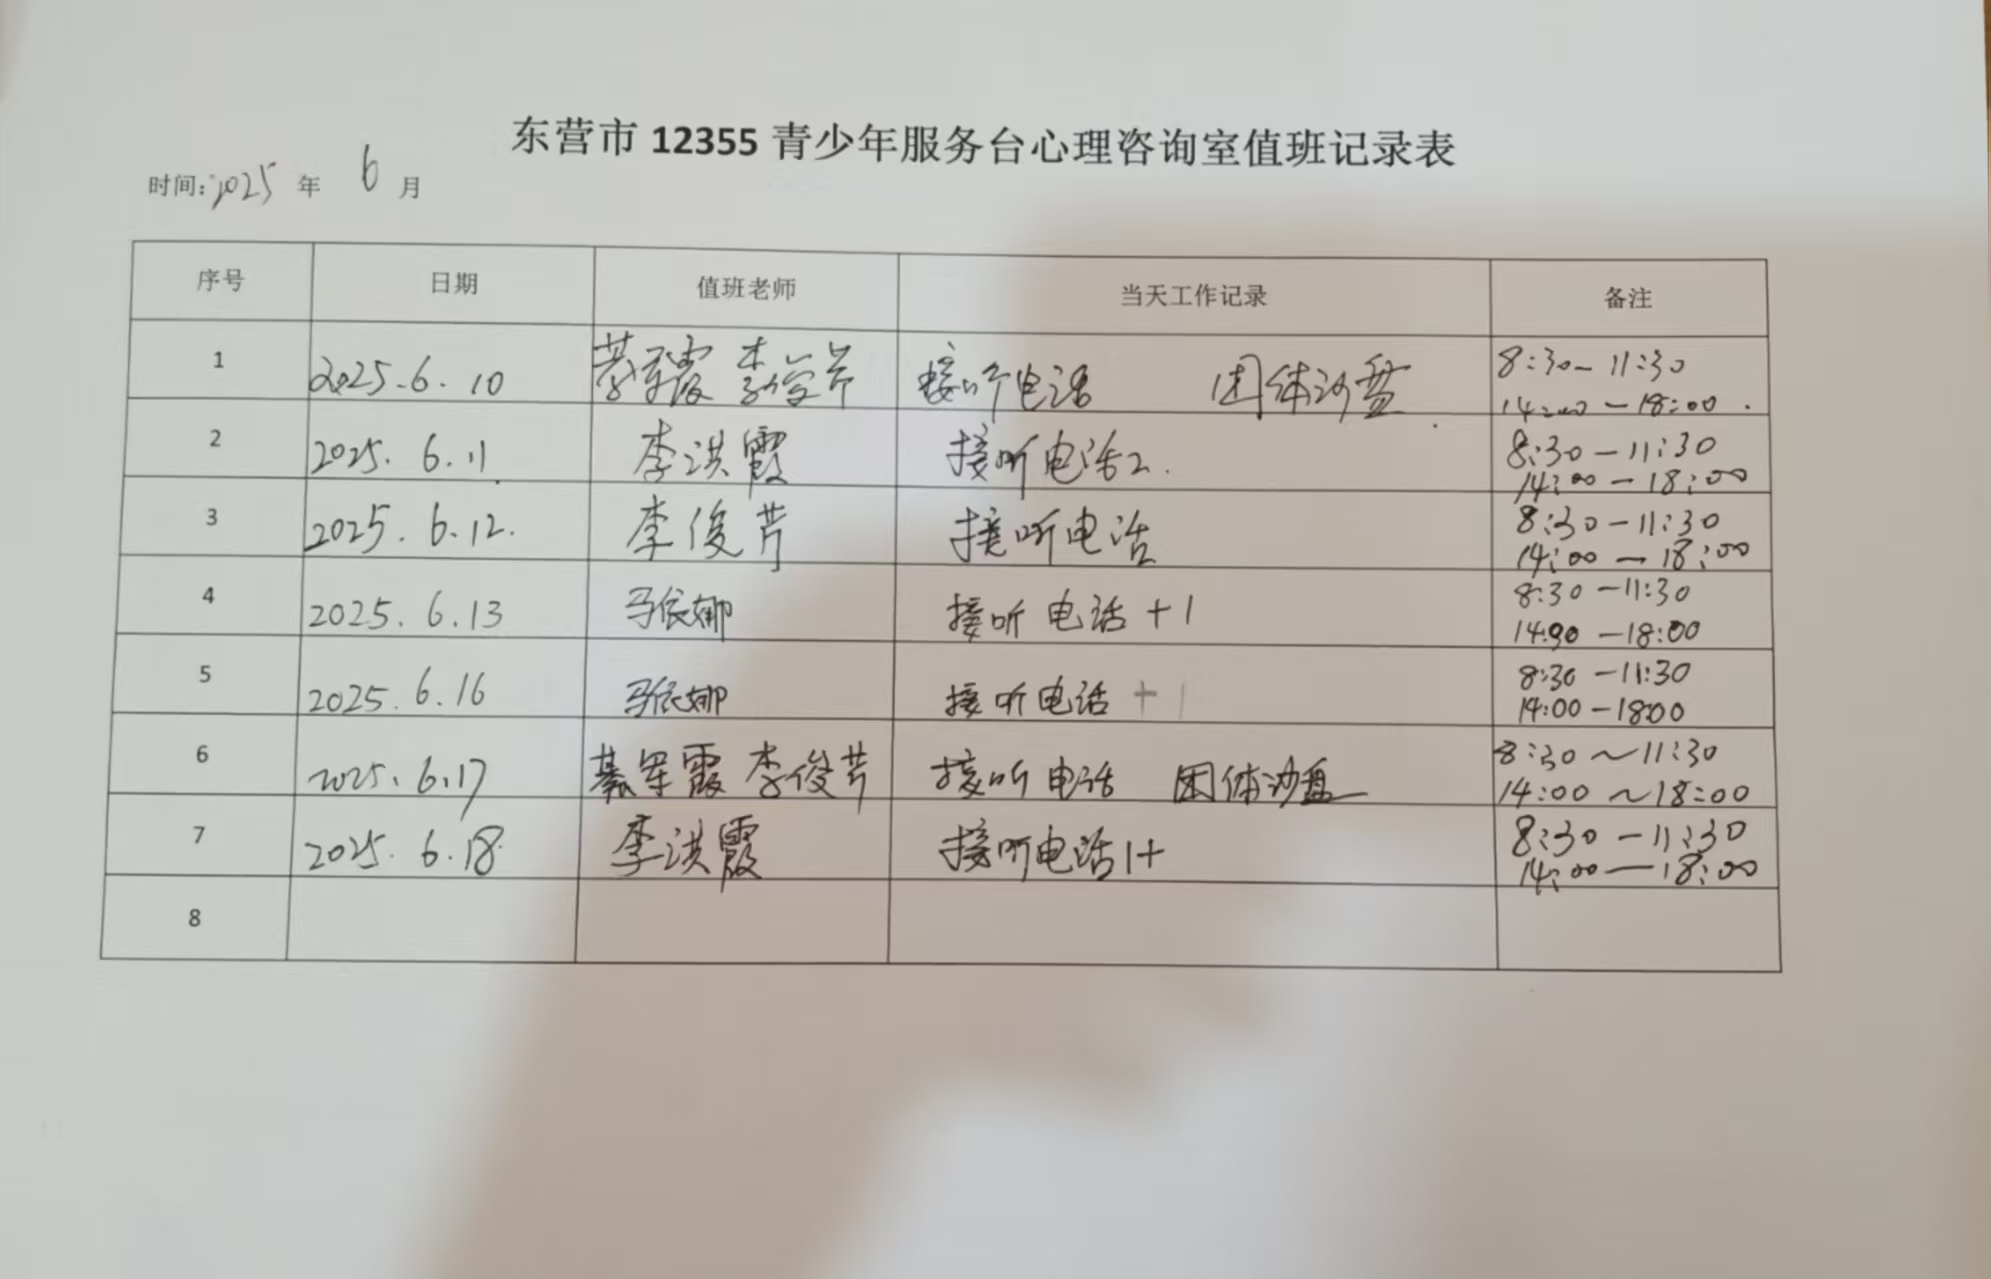 东营市 12355 青少年服务台心理咨询室值班记录表
时间:2025 年 6 月
序号 日期 值班老师 当天工作记录 备注
1 2025.6.10 綦军霞 李俊芹 接听电话 团体沙盘 8:30-11:30
14:00-18:00.
2 2025.6.11 李洪霞 接听电话2. 8:30-11:30
14:00-18:00
3 2025.6.12. 李俊芹 接听电话 8:30-11:30
14:00-18:00
4 2025.6.13 马依娜 接听电话+1 8:30-11:30
14:00-18:00
5 2025.6.16 马依娜 接听电话+1 8:30-11:30
14:00-18:00
6 2025.6.17 綦军霞 李俊芹 接听电话 团体沙盘 8:30~11:30
14:00~18:00
7 2025.6.18 李洪霞 接听电话1+ 8:30-11:30
14:00-18:00
8